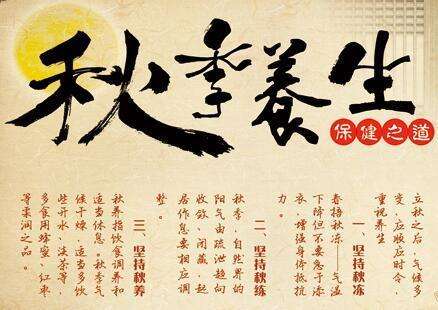 秋季養生
保健之道
立秋之后，气候多
变，应顺应时令
重视养生
一、坚持秋冻
春捂秋冻——气温
下降但不要急于添
衣，增强身体抵抗
力。
二、坚持秋练
秋季，自然界的
阳气由疏泄趋向
收敛、闭藏，起
居作息要相应调
整。
三、坚持秋养
秋养指饮食调养和
适当休息。秋季气
候干燥，适当多饮
些开水、淡茶等，
多食用蜂蜜、红枣
等柔润之品。